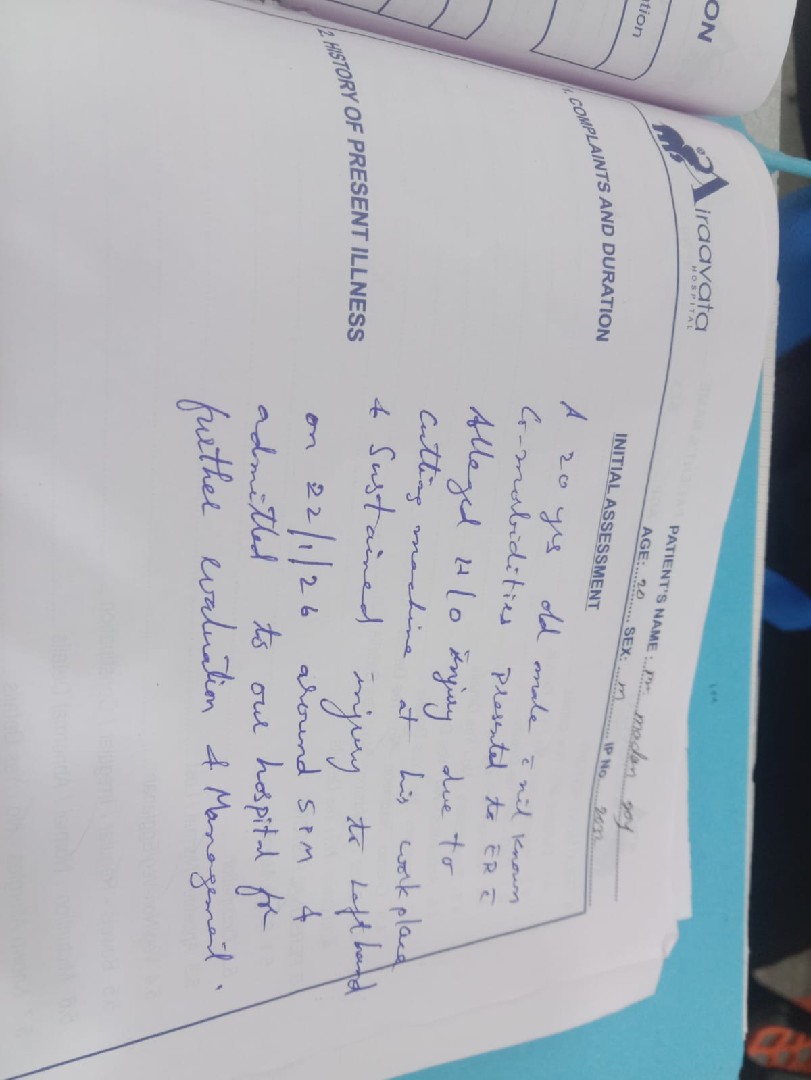 ON
tion
Airaavata
HOSPITAL
PATIENT'S NAME: Mr. madan
AGE: 20 SEX: m IP No
INITIAL ASSESSMENT
1. COMPLAINTS AND DURATION
A 20 yrs old male c̄ nil known
Co-morbidities presented to ER c̄
Alleged H/O injury due to
cutting machine at his workplace
& Sustained injury to Left hand
on 22/1/26 around 5PM &
admitted to our hospital for
further evaluation & Management.
2. HISTORY OF PRESENT ILLNESS